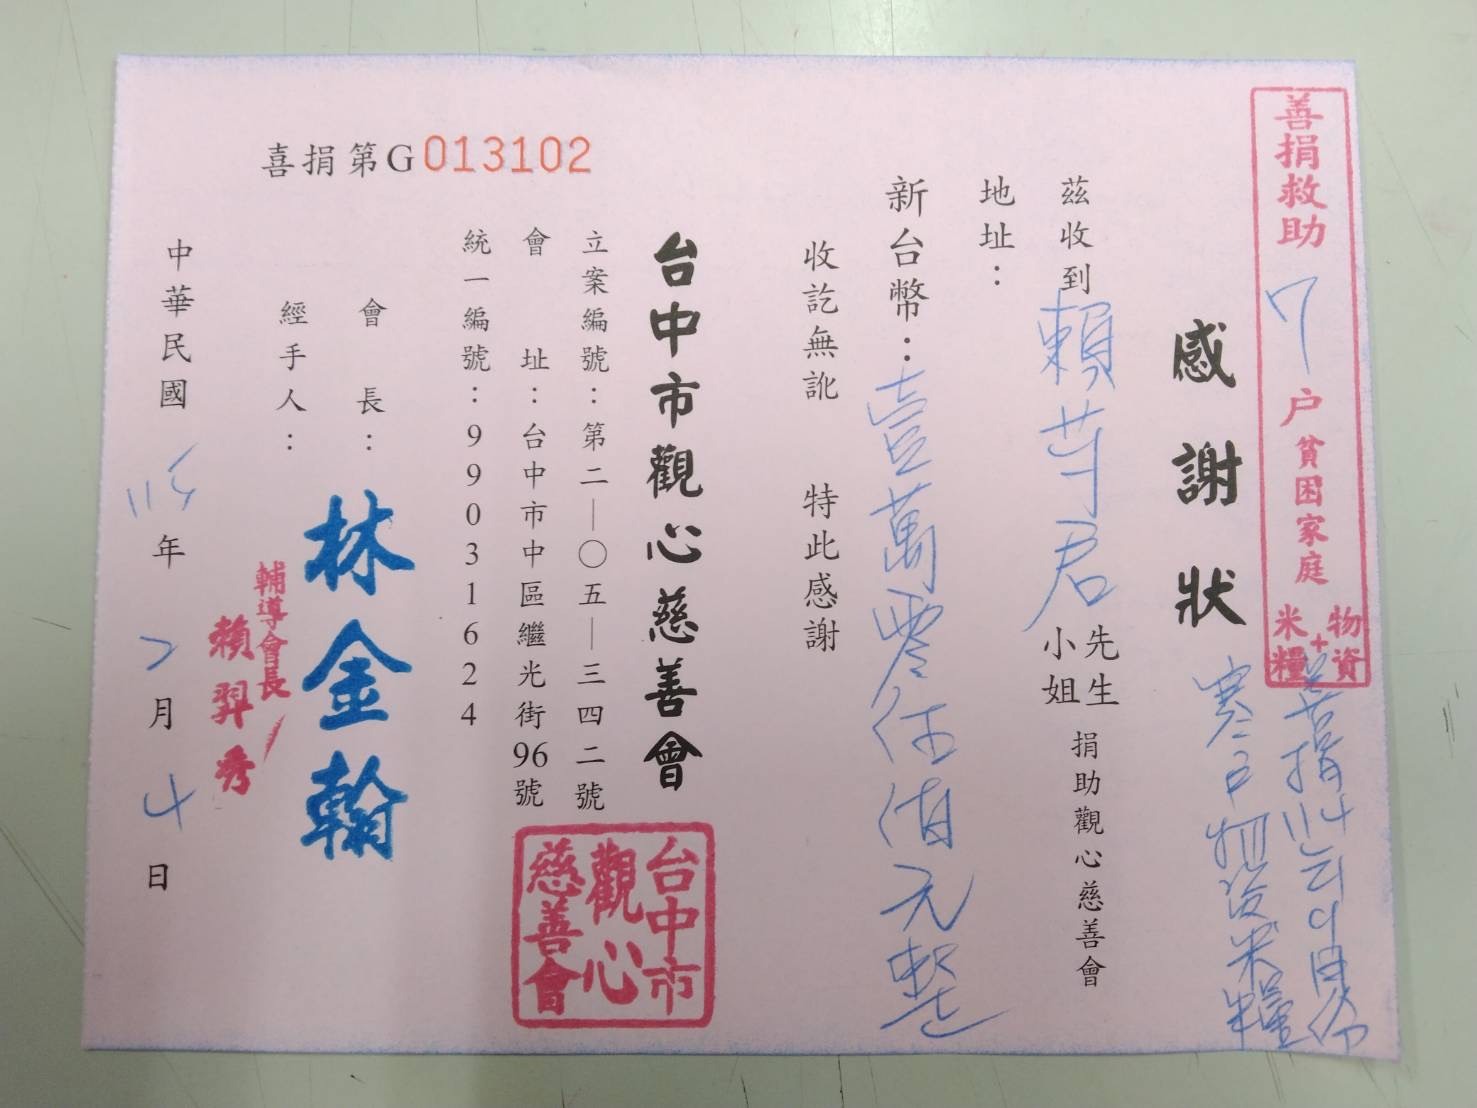 善捐救助 7 户貧困家庭
米糧+物資
善捐114
寒戶物資米糧
感謝狀
茲收到賴芊君先生小姐 捐助觀心慈善會
地址：
新台幣：壹萬零伍佰元整
收訖無訛 特此感謝
台中市觀心慈善會
立案編號：第二—〇五—三四二號
會址：台中市中區繼光街96號
統一編號：99031624
台中市觀心慈善會
會長：林金翰
經手人：
輔導會長
賴羿秀
喜捐第G013102
中華民國 115 年 2 月 4 日